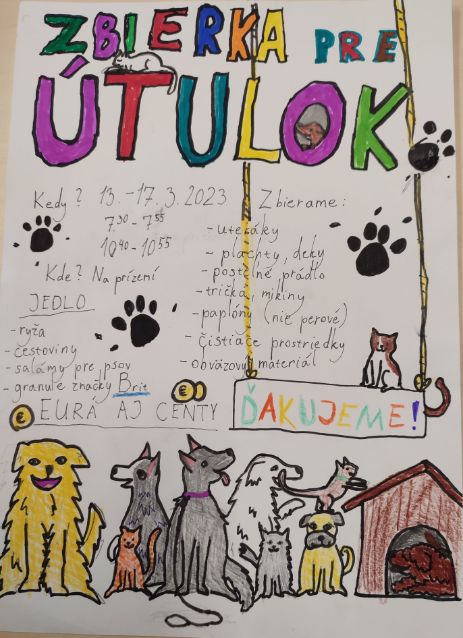 ZBIERKA PRE
ÚTULOK
Kedy? 13.-17.3.2023
7³⁰-7⁵⁵
10⁴⁰-10⁵⁵
Kde? Na prízení
JEDLO
- ryža
- cestoviny
- salámy pre psov
- granule značky Brit
€ EURÁ AJ CENTY
Zbierame:
- uteráky
- plachty, deky
- posteľné prádlo
- tričká, mikiny
- paplóny (nie perové)
- čistiace prostriedky
- obväzový materiál
ĎAKUJEME!